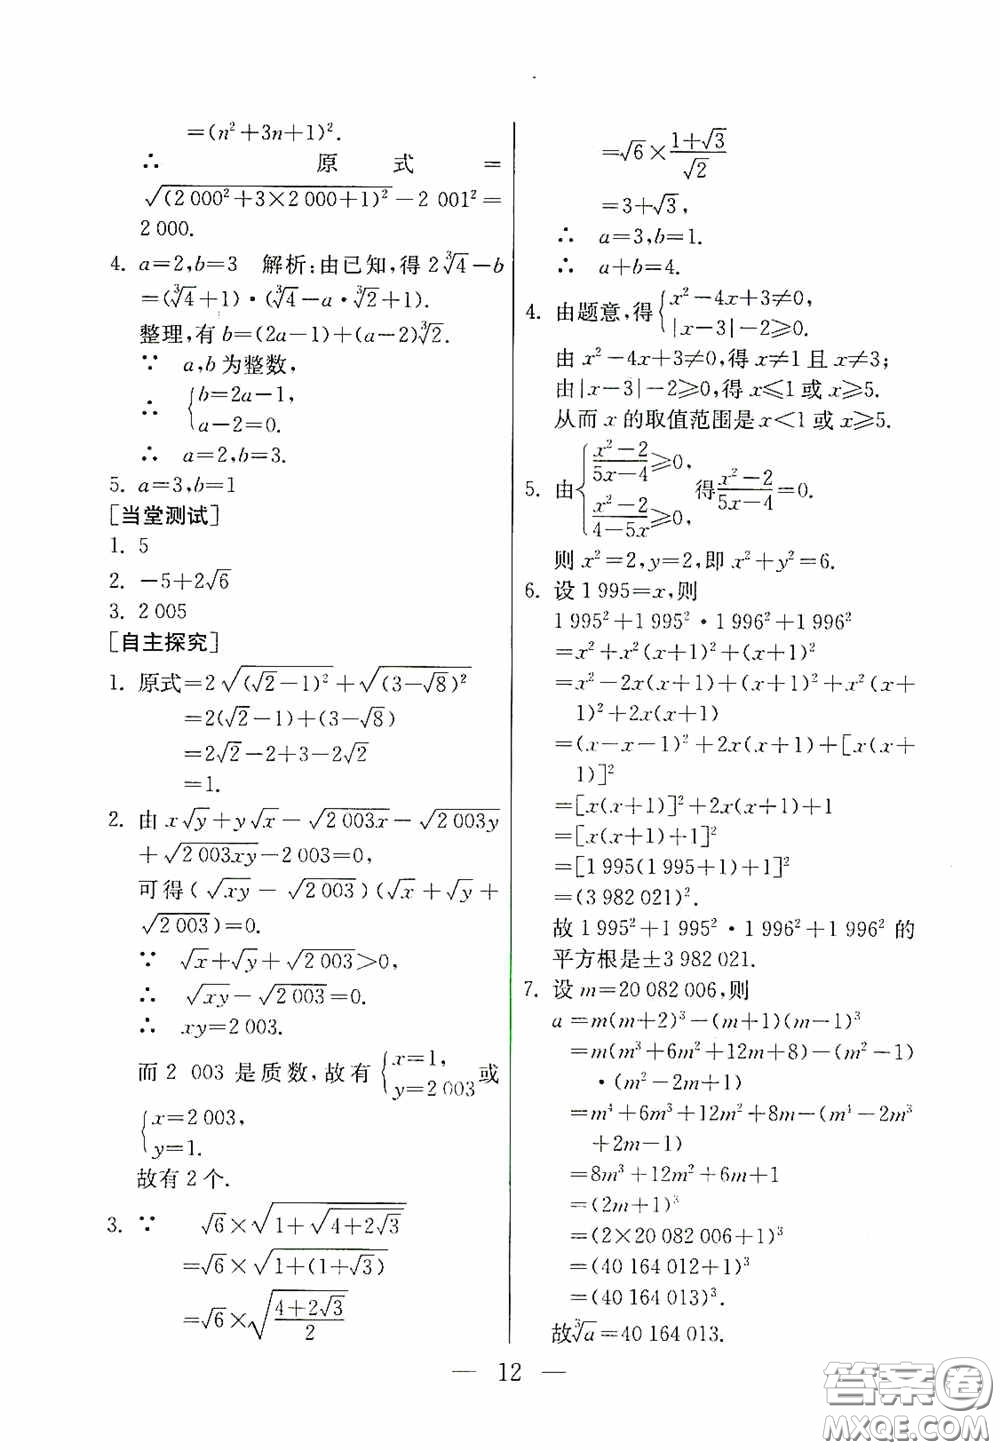 =(n²+3n+1)².
∴ 原式=
√((2 000²+3×2 000+1)²)−2 001²=
2 000.
4. a=2,b=3 解析:由已知,得 2∛4−b
=(∛4+1)·(∛4−a·∛2+1).
整理,有 b=(2a−1)+(a−2)∛2.
∵ a,b 为整数,
∴ {b=2a−1,
a−2=0.
∴ a=2,b=3.
5. a=3,b=1
[当堂测试]
1. 5
2. −5+2√6
3. 2 005
[自主探究]
1. 原式=2√((√2−1)²)+√((3−√8)²)
=2(√2−1)+(3−√8)
=2√2−2+3−2√2
=1.
2. 由 x√y+y√x−√(2 003x)−√(2 003y)
+√(2 003xy)−2 003=0,
可得(√(xy)−√(2 003))(√x+√y+
√(2 003))=0.
∵ √x+√y+√(2 003)>0,
∴ √(xy)−√(2 003)=0.
∴ xy=2 003.
而 2 003 是质数,故有{x=1, y=2 003 或
{x=2 003,
y=1.
故有 2 个.
3. ∵ √6×√(1+√(4+2√3))
=√6×√(1+(1+√3))
=√6×√((4+2√3)/2)
=√6×(1+√3)/√2
=3+√3,
∴ a=3,b=1.
∴ a+b=4.
4. 由题意,得{x²−4x+3≠0,
|x−3|−2≥0.
由 x²−4x+3≠0,得 x≠1 且 x≠3;
由|x−3|−2≥0,得 x≤1 或 x≥5.
从而 x 的取值范围是 x<1 或 x≥5.
5. 由{(x²−2)/(5x−4)≥0, (x²−2)/(4−5x)≥0, 得(x²−2)/(5x−4)=0.
则 x²=2,y=2,即 x²+y²=6.
6. 设 1 995=x,则
1 995²+1 995²·1 996²+1 996²
=x²+x²(x+1)²+(x+1)²
=x²−2x(x+1)+(x+1)²+x²(x+
1)²+2x(x+1)
=(x−x−1)²+2x(x+1)+[x(x+
1)]²
=[x(x+1)]²+2x(x+1)+1
=[x(x+1)+1]²
=[1 995(1 995+1)+1]²
=(3 982 021)².
故 1 995²+1 995²·1 996²+1 996² 的
平方根是±3 982 021.
7. 设 m=20 082 006,则
a=m(m+2)³−(m+1)(m−1)³
=m(m³+6m²+12m+8)−(m²−1)
·(m²−2m+1)
=m⁴+6m³+12m²+8m−(m⁴−2m³
+2m−1)
=8m³+12m²+6m+1
=(2m+1)³
=(2×20 082 006+1)³
=(40 164 012+1)³
=(40 164 013)³.
故∛a=40 164 013.
— 12 —
答案圈
MXQE.COM